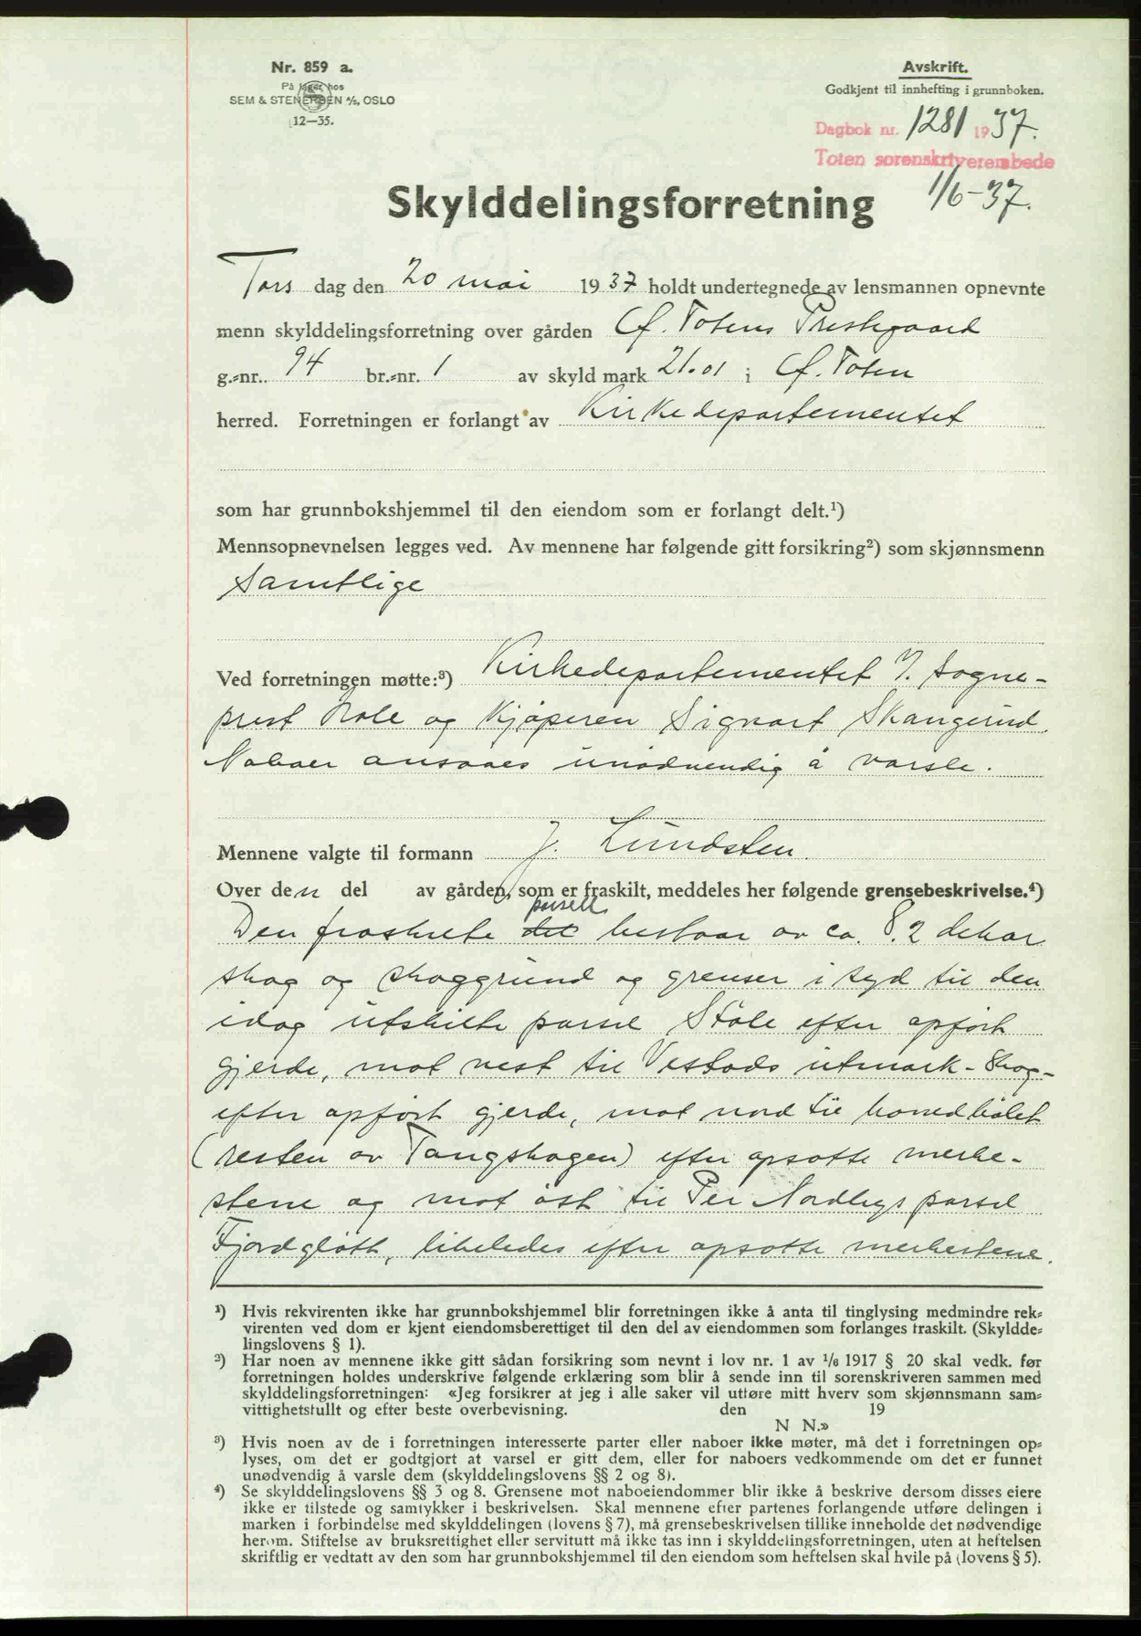 Nr. 859 a.
På lager hos
SEM & STENERSEN A/S, OSLO
12-35.
Avskrift.
Godkjent til innhefting i grunnboken.
Dagbok nr. 1281 1937.
Toten sorenskriverembede
1/6-37.
Skylddelingsforretning
Tors dag den 20 mai 1937 holdt undertegnede av lensmannen opnevnte
menn skylddelingsforretning over gården Ø. Totens Prestegaard
g.-nr. 94 br.-nr. 1 av skyld mark 21.01 i Ø. Toten
herred. Forretningen er forlangt av Kirkedepartementet
som har grunnbokshjemmel til den eiendom som er forlangt delt.¹)
Mennsopnevnelsen legges ved. Av mennene har følgende gitt forsikring²) som skjønnsmenn
Samtlige
Ved forretningen møtte:³) Kirkedepartementet v/. Sogne-
prest Role og Kjøperen Sigvart Skangerud.
Naboer ansaaes unødvendig å varsle.
Mennene valgte til formann J. Lundsten.
Over den del av gården, som er fraskilt, meddeles her følgende grensebeskrivelse.⁴)
parsell
Den fraskilte det bestaar av ca. 8.2 dekar
skog og skoggrund og grenser i syd til den
idag utskilte parsel Støle efter opført
gjerde, mot vest til Vestads utmark-Skog-
efter opført gjerde, mot nord til hovedbølet
(resten av Tangshagen) efter opsatte merke-
stene og mot øst til Per Nordbys parsel
Fjordgløtt, likeledes efter opsatte merkestene.
¹) Hvis rekvirenten ikke har grunnbokshjemmel blir forretningen ikke å anta til tinglysing medmindre rek-
virenten ved dom er kjent eiendomsberettiget til den del av eiendommen som forlanges fraskilt. (Skyldde-
lingslovens § 1).
²) Har noen av mennene ikke gitt sådan forsikring som nevnt i lov nr. 1 av 1/6 1917 § 20 skal vedk. før
forretningen holdes underskrive følgende erklæring som blir å sende inn til sorenskriveren sammen med
skylddelingsforretningen: «Jeg forsikrer at jeg i alle saker vil utføre mitt hverv som skjønnsmann sam-
vittighetsfullt og efter beste overbevisning. den 19
N N.»
³) Hvis noen av de i forretningen interesserte parter eller naboer ikke møter, må det i forretningen op-
lyses, om det er godtgjort at varsel er gitt dem, eller for naboers vedkommende om det er funnet
unødvendig å varsle dem (skylddelingslovens §§ 2 og 8).
⁴) Se skylddelingslovens §§ 3 og 8. Grensene mot naboeiendommer blir ikke å beskrive dersom disses eiere
ikke er tilstede og samtykker i beskrivelsen. Skal mennene efter partenes forlangende utføre delingen i
marken i forbindelse med skylddelingen (lovens § 7), må grensebeskrivelsen tillike inneholde det nødvendige
herom. Stiftelse av bruksrettighet eller servitutt må ikke tas inn i skylddelingsforretningen, uten at heftelsen
skriftlig er vedtatt av den som har grunnbokshjemmel til den eiendom som heftelsen skal hvile på (lovens § 5).